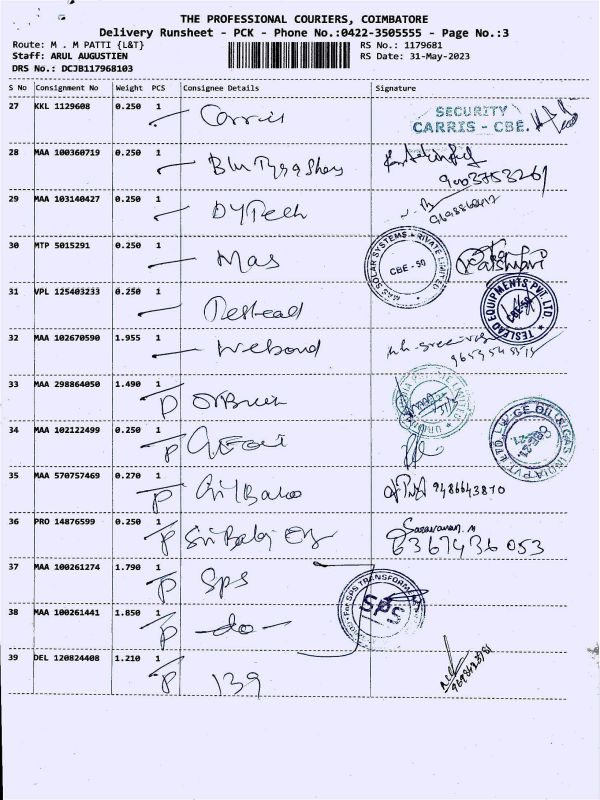 THE PROFESSIONAL COURIERS, COIMBATORE
Delivery Runsheet - PCK - Phone No.:0422-3505555 - Page No.:3
Route: M . M PATTI {L&T} RS No.: 1179681
Staff: ARUL AUGUSTIEN RS Date: 31-May-2023
DRS No.: DCJB117968103
S No Consignment No Weight PCS Consignee Details Signature
27 KKL 1129608 0.250 1 Carris SECURITY
CARRIS - CBE.
28 MAA 100360719 0.250 1
9003753261
29 MAA 103140427 0.250 1 DYTech
30 MTP 5015291 0.250 1 Mas MAS SOLAR SYSTEMS PRIVATE LIMITED CBE - 50
31 VPL 125403233 0.250 1 Teslead TESLEAD EQUIPMENTS PVT. LTD. CBE-50
32 MAA 102670590 1.955 1 Webond
33 MAA 298864050 1.490 1 P
34 MAA 102122499 0.250 1 P
35 MAA 570757469 0.270 1 P 9486643870
36 PRO 14876599 0.250 1 P Sri Balaji Saravanan. M
6367436053
37 MAA 100261274 1.790 1 P SPS For SPS TRANSFORMERS SPS
38 MAA 100261441 1.850 1 P - do -
39 DEL 120824408 1.210 1 P 139